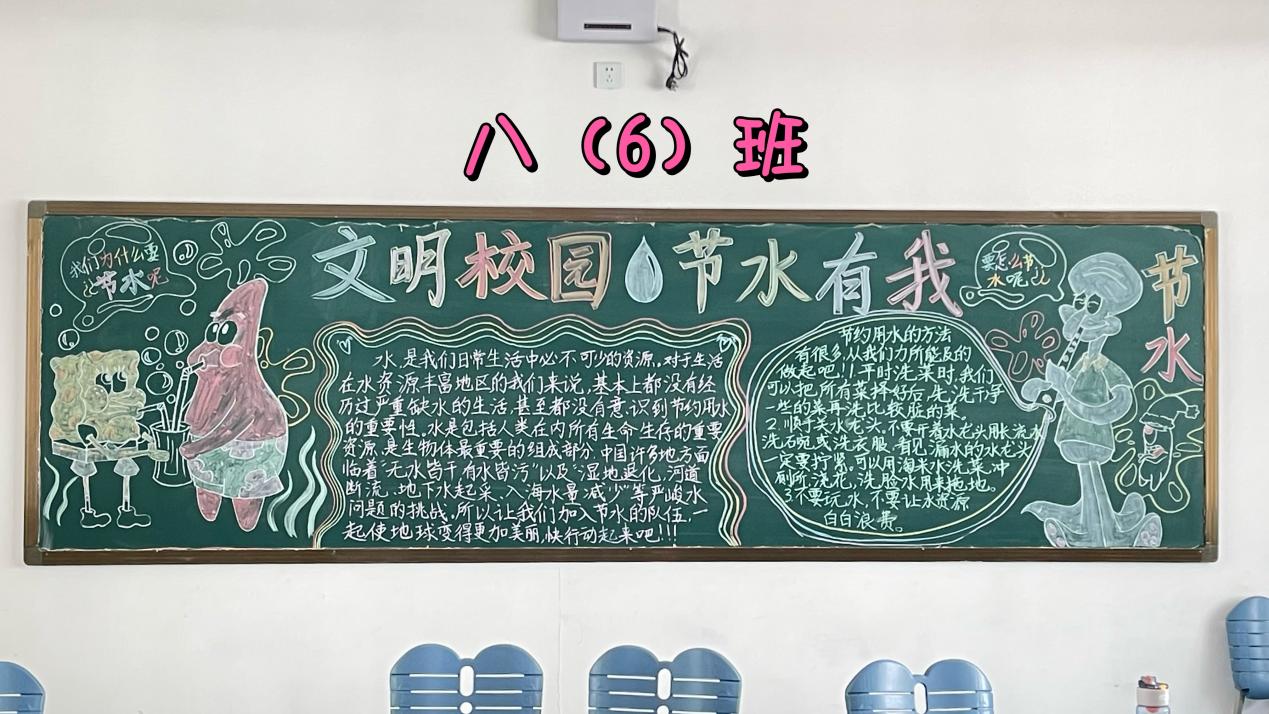 八（6）班
文明校园 节水有我
节水
我们为什么要
节水呢
要怎么节
水呢
水,是我们日常生活中必不可少的资源,对于生活
在水资源丰富地区的我们来说,基本上都没有经
历过严重缺水的生活,甚至都没有意识到节约用水
的重要性。水是包括人类在内所有生命生存的重要
资源,是生物体最重要的组成部分。中国许多地方面
临着“无水皆干有水皆污”以及“湿地退化,河道
断流,地下水起采,入海水量减少”等严峻水
问题的挑战,所以让我们加入节水的队伍,一
起使地球变得更加美丽,快行动起来吧!!!
节约用水的方法
有很多,从我们力所能及的
做起吧!1.平时洗菜时,我们
可以把所有菜择好后,先洗干净
一些的菜再洗比较脏的菜。
2.顺手关水龙头,不要开着水龙头用长流水
洗石碗或洗衣服。看见漏水的水龙头
一定要拧紧。可以用淘米水洗菜,冲
厕所,洗花,洗脸水用来拖地。
3不要玩水,不要让水资源
白白浪费。